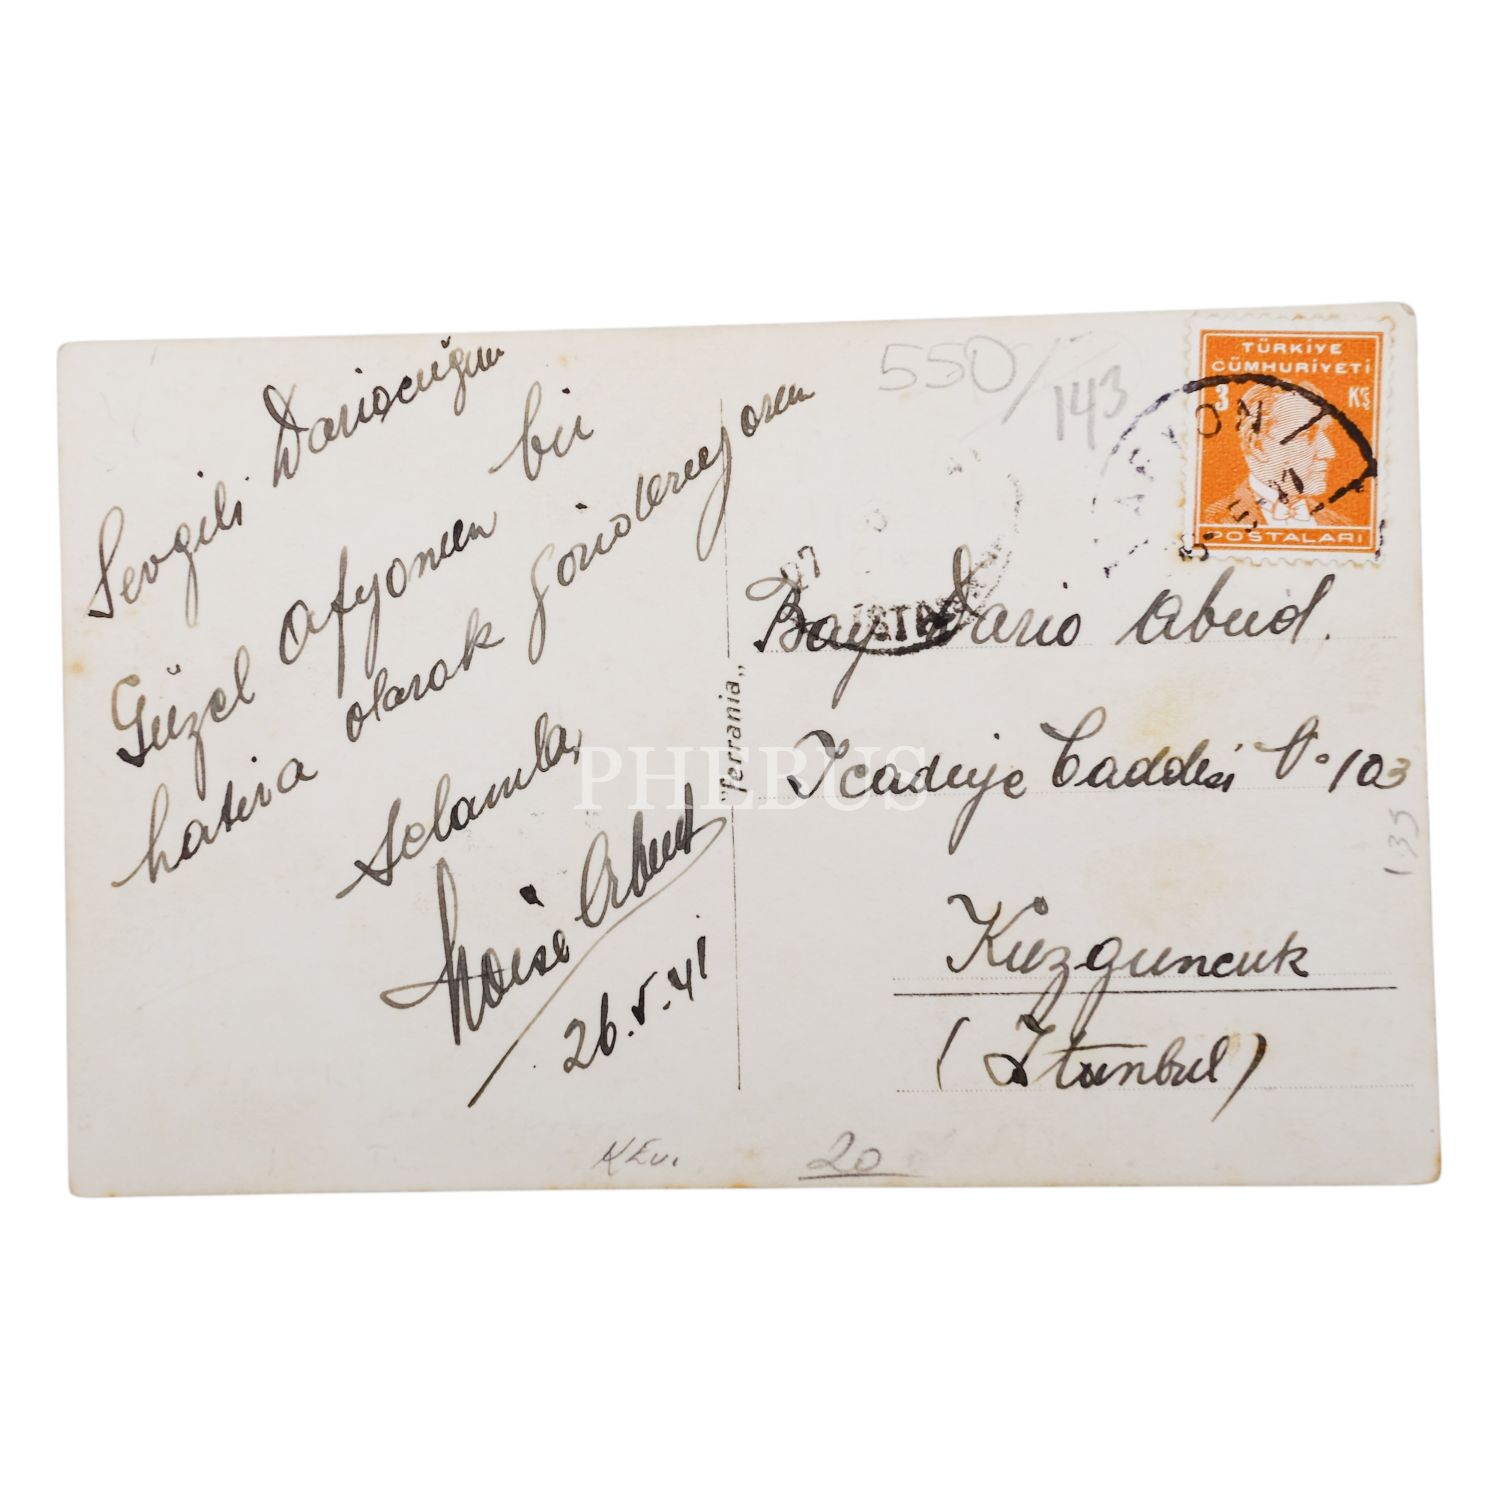 Sevgili Dariocuğum
Güzel Afyonun bir
hatıra olarak gönderiyorum
Selamlar
Moise Abud
26.V.41
"ferrania"
550/143
TÜRKİYE
CÜMHURİYETİ
3 KŞ
POSTALARI
AFYON
27
İSTAN
Bay Dario Abud.
İcadiye Caddesi No 103
135
Kuzguncuk
(İstanbul)
20
PHEBUS